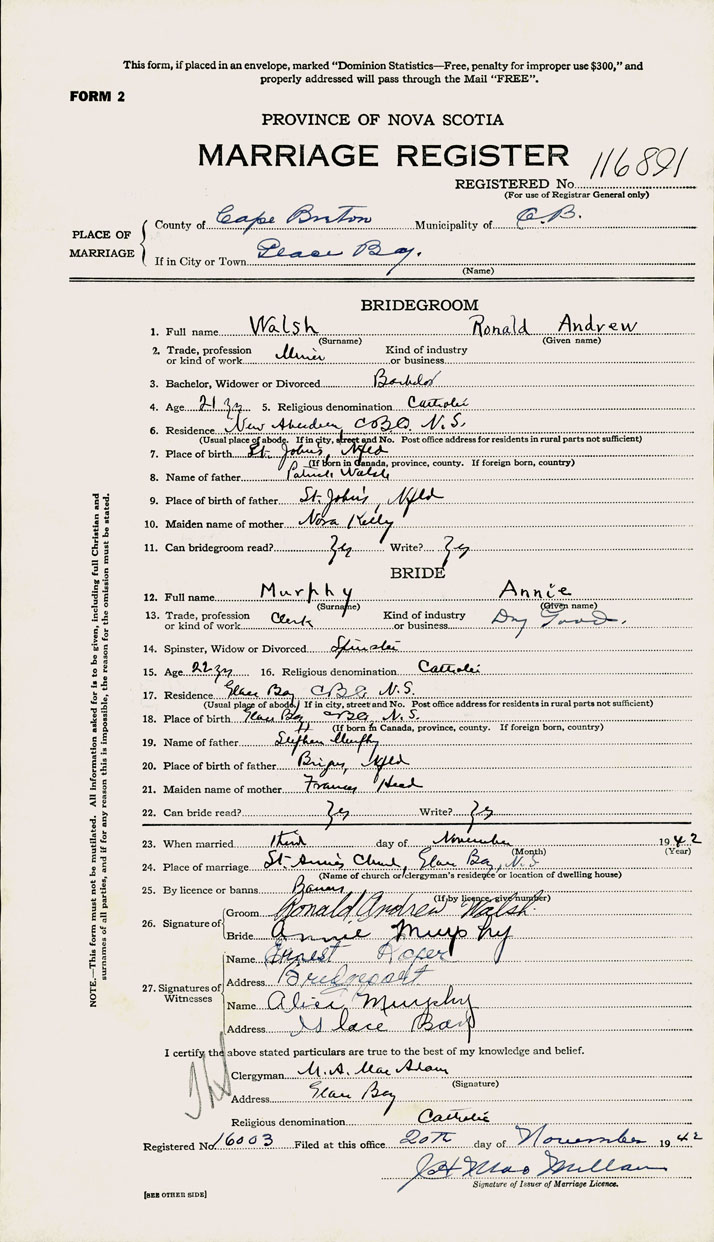 This form, if placed in an envelope, marked "Dominion Statistics—Free, penalty for improper use $300," and
properly addressed will pass through the Mail "FREE".
FORM 2
PROVINCE OF NOVA SCOTIA
MARRIAGE REGISTER
REGISTERED No. 116891
(For use of Registrar General only)
PLACE OF MARRIAGE
County of Cape Breton Municipality of C.B.
If in City or Town Glace Bay.
(Name)
BRIDEGROOM
1. Full name Walsh Ronald Andrew
(Surname) (Given name)
2. Trade, profession or kind of work Miner Kind of industry or business
3. Bachelor, Widower or Divorced Bachelor
4. Age 21 yrs 5. Religious denomination Catholic
6. Residence New Aberdeen, C.B.Co. N.S.
(Usual place of abode. If in city, street and No. Post office address for residents in rural parts not sufficient)
7. Place of birth St. John's, Nfld
(If born in Canada, province, county. If foreign born, country)
8. Name of father Patrick Walsh
9. Place of birth of father St. John's, Nfld
10. Maiden name of mother Nora Kelly
11. Can bridegroom read? Yes Write? Yes
BRIDE
12. Full name Murphy Annie
(Surname) (Given name)
13. Trade, profession or kind of work Clerk Kind of industry or business Dry Goods.
14. Spinster, Widow or Divorced Spinster
15. Age 22 yrs 16. Religious denomination Catholic
17. Residence Glace Bay C.B.Co. N.S.
(Usual place of abode. If in city, street and No. Post office address for residents in rural parts not sufficient)
18. Place of birth Glace Bay C.B.Co. N.S.
(If born in Canada, province, county. If foreign born, country)
19. Name of father Stephen Murphy
20. Place of birth of father Brigus, Nfld
21. Maiden name of mother Frances Head
22. Can bride read? Yes Write? Yes
23. When married Third day of November 1942
(Month) (Year)
24. Place of marriage St. Ann's Church, Glace Bay, N.S.
(Name of church or clergyman's residence or location of dwelling house)
25. By licence or banns Banns
(If by licence, give number)
26. Signature of
Groom Ronald Andrew Walsh.
Bride Annie Murphy
27. Signatures of Witnesses
Name Ernest Roper
Address Bridgeport
Name Alice Murphy
Address Glace Bay
I certify the above stated particulars are true to the best of my knowledge and belief.
Clergyman M. A. MacAdam
(Signature)
Address Glace Bay
Religious denomination Catholic
Registered No. 16003 Filed at this office 20th day of November 1942
J H MacMillan
Signature of Issuer of Marriage Licence.
[SEE OTHER SIDE]
NOTE.—This form must not be mutilated. All information asked for is to be given, including full Christian and
surnames of all parties, and if for any reason this is impossible, the reason for the omission must be stated.